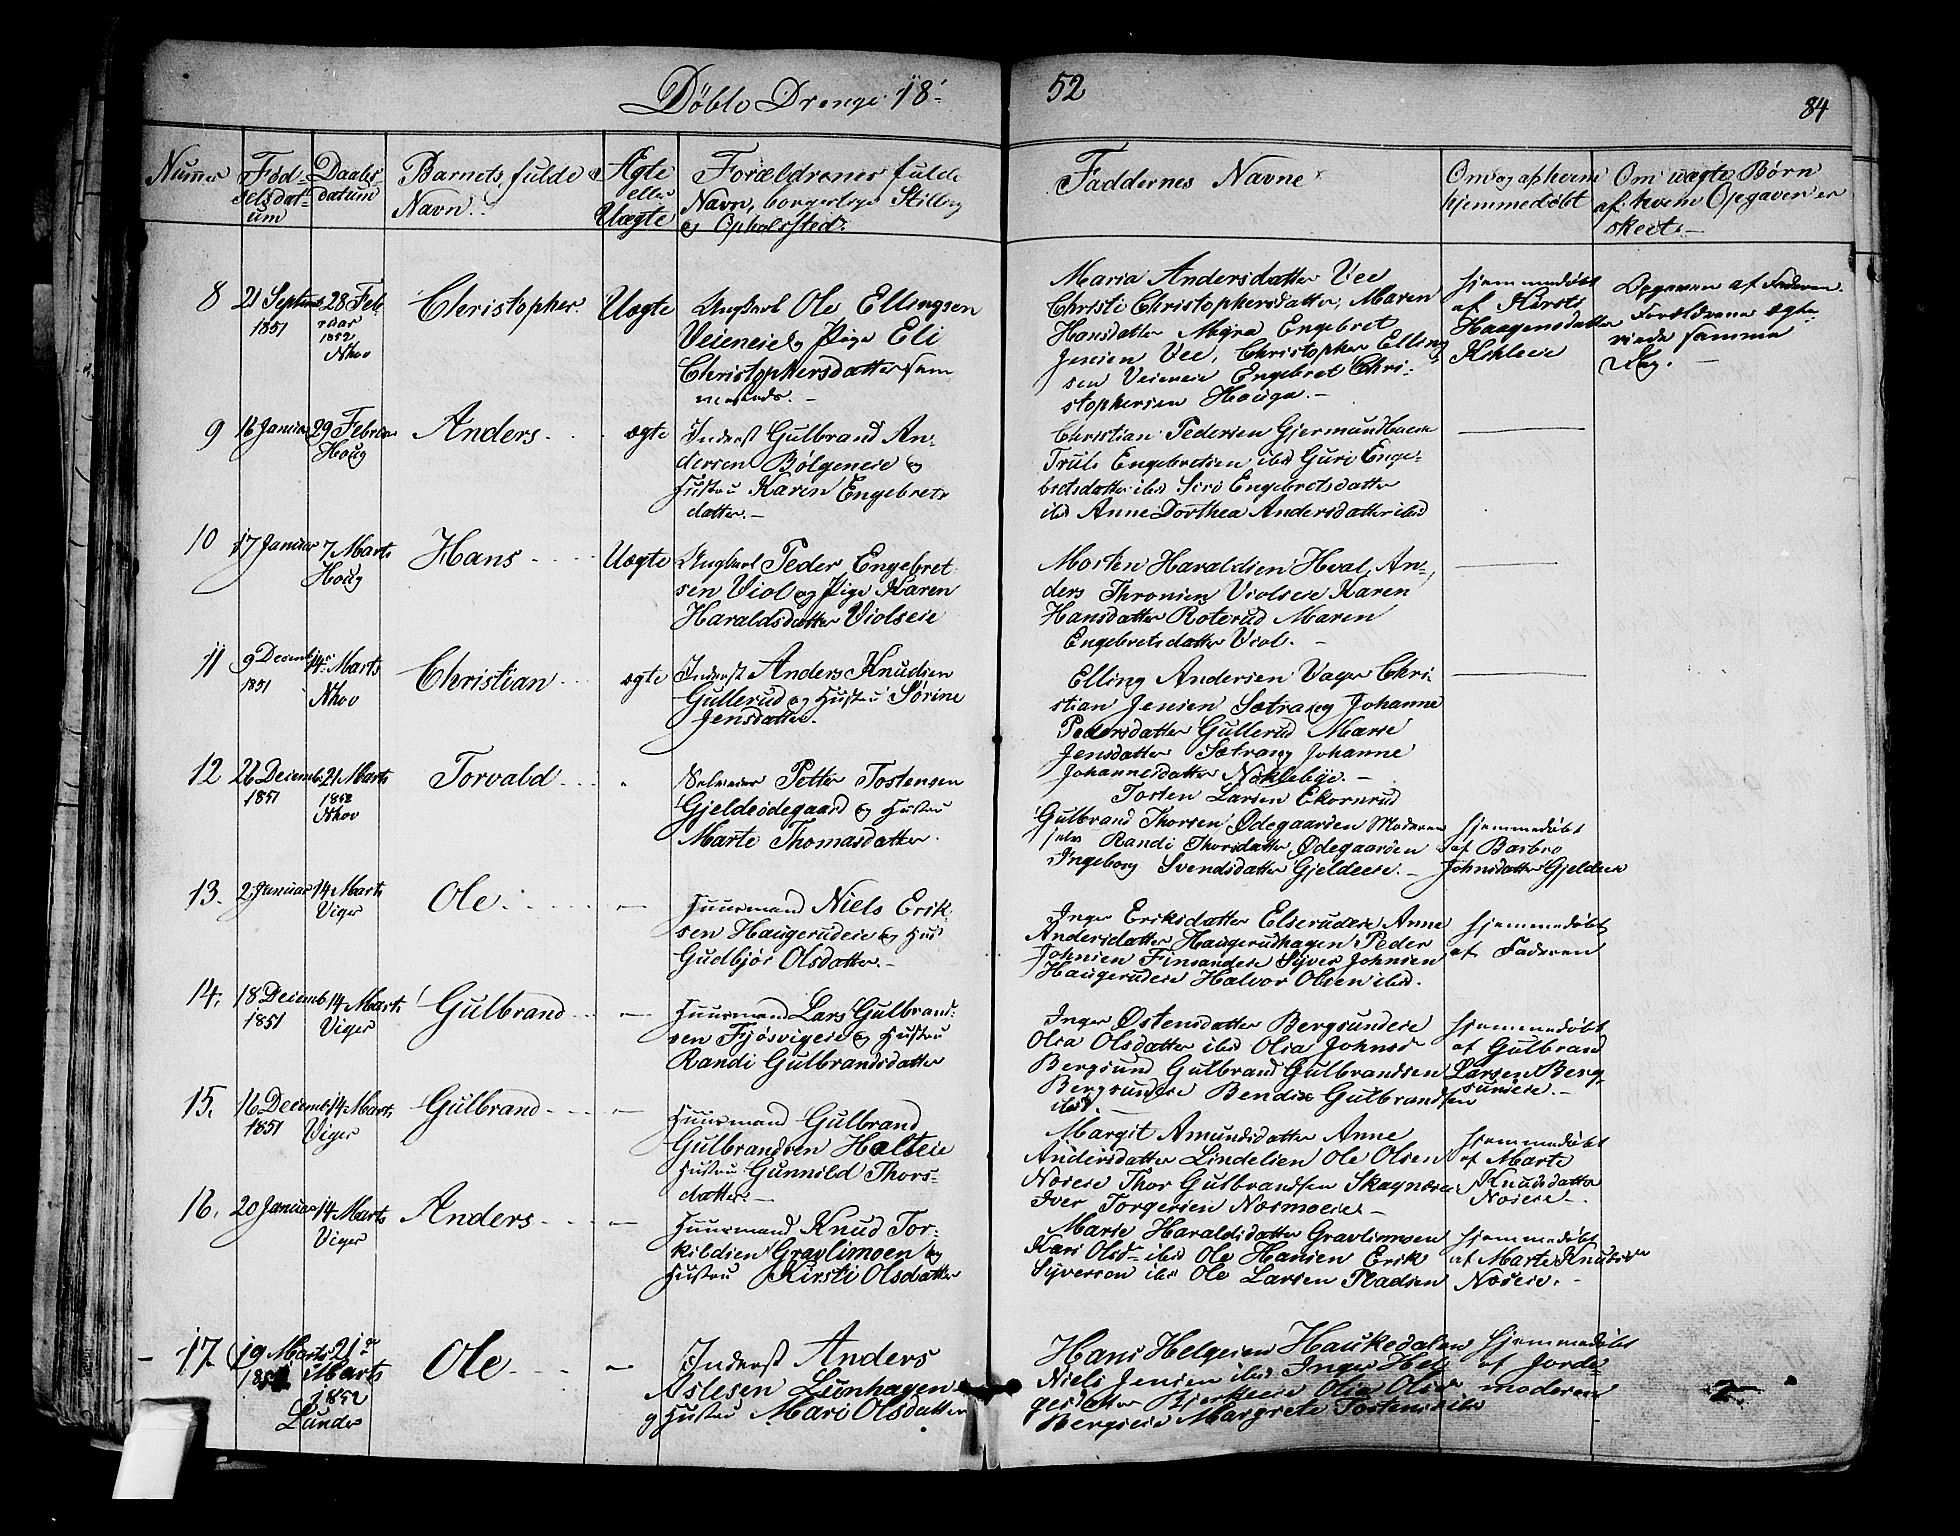 Døbte Drenge 18
52
84
Numer
Fød-
selsdat-
um
Daabs
datum
Barnets fulde
Navn.
Ægte
eller
Uægte
Forældrenes fulde
Navn, borgerlige Stilling
og Opholdsted.
Faddernes Navne
Om og af hvem
hjemmedøbt
Om uægte Børn
af hvem Opgaven er
skeet.
8
21 Septemb
1851
28 Feb
ruar
1852
Nhov
Christopher
Uægte
Ungkarl Ole Ellingsen
Veieneie og Pige Eli
Christophersdatter sam
mesteds. —
Maria Andersdatter Vee
Christi Christophersdatter, Maren
Hansdatter Engebret
Jensen Vee, Christopher Elling
sen Veieneie Engebret Chri-
stophersen Houga. —
hjemmedøbt
af Kirsti
Haagensdatter
Opgaven af Faderen
Forældrene ægte-
viede samme
Dag.
9
16 Januar
29 Februar
Houg
Anders
ægte
Inderst Gulbrand An-
dersen Bølgeneie og
Hustru Karen Engebrets
datter. —
Christian Pedersen Gjermundboeie
Truls Engebretsen ibid Guri Enge-
bretsdatter ibid Siri Engebretsdatter
ibid Anne Dorthea Andersdatter ibid
10
17 Januar
7 Marts
Houg
Hans
Uægte
Ungkarl Peder Engebret
sen Viol og Pige Karen
Haraldsdatter Violseie
Morten Haraldsen Hval, An-
ders Thronsen Violseie Karen
Hansdatter Roterud Maren
Engebretsdatter Viol. —
11
9 Decemb
1851
14 Marts
Nhov
Christian
ægte
Inderst Anders Knudsen
Gullerud og Hustru Sørine
Jensdatter.
Elling Andersen Vager Chri-
stian Jensen Sætrang Johanne
Pedersdatter Gullerud Marie
Jensdatter Sætrang Johanne
Johannesdatter Noklebye. —
12
26 Decemb
1851
21 Marts
1852
Nhov
Torvald
Selveier Petter Tostensen
Gjeldeødegaard og Hustru
Marte Thomasdatter.
Tosten Larsen Ekornrud
Gulbrand Thorsen Ødegaarden Moderen
selv Randi Thorsdatter Ødegaarden
Ingeborg Svendsdatter Gjeldeeie. —
hjemmedøbt
af Barbro
Johnsdatter Gjeldeeie
13.
2 Januar
14 Marts
Viger
Ole
—
Huusmand Niels Erik
sen Haugerudeie og Hus
Gudbjør Olsdatter. —
Inger Eriksdatter Elserudeie Anne
Andersdatter Haugerudhagen Peder
Johnsen Finsandeie Syver Johnsen
Haugerudeie Halvor Olsen ibid.
hjemmedøbt
af Faderen
14.
18 Decemb
1851
14 Marts
Viger
Gulbrand
—
Huusmand Lars Gulbrand-
sen Fjøsvigeie og Hustru
Randi Gulbrandsdatter
Inger Østensdatter Bergsundeie
Olia Olsdatter ibid Olia Johnsd
Bergsund Gulbrand Gulbrandsen
Bergsundeie Bendix Gulbrandsen
ibid. —
hjemmedøbt
af Gulbrand
Larsen Berg-
sundeie. —
15.
16 Decemb
1851
14 Marts
Viger
Gulbrand
—
Huusmand Gulbrand
Gulbrandsen Halseie
Hustru Gunnild Thors-
datter. —
Margit Amundsdatter Anne
Andersdatter Lindelien Ole Olsen
Noseie Thor Gulbrandsen Skagnæseie
Iver Torgersen Næsmoeie —
hjemmedøbt
af Marte
Knudsdatter
Noseie —
16.
20 Januar
14 Marts
Viger
Anders
—
Huusmand Knud Tor-
kildsen Gravlimoen og
Hustru Kirsti Olsdatter
Marie Haraldsdatter Gravlimoen
Kari Olsdr ibid Ole Hansen Erik
Syversen ibid Ole Larsen Pladsen
hjemmedøbt
af Marte Knutsdr
Noseie. —
17
19 Marts
1852
21de
Marts
1852
Lunder
Ole
—
Inderst Anders
Aslesen Lunhagen
og Hustru Mari Olsdatter
Hans Helgesen Haukedalen
Niels Jensen ibid Inger Hel-
gesdatter Bjerkeeie Olia Olsdr
Bergseie Margrete Tostensd ibid
hjemmedøbt
af Jorde
moderen